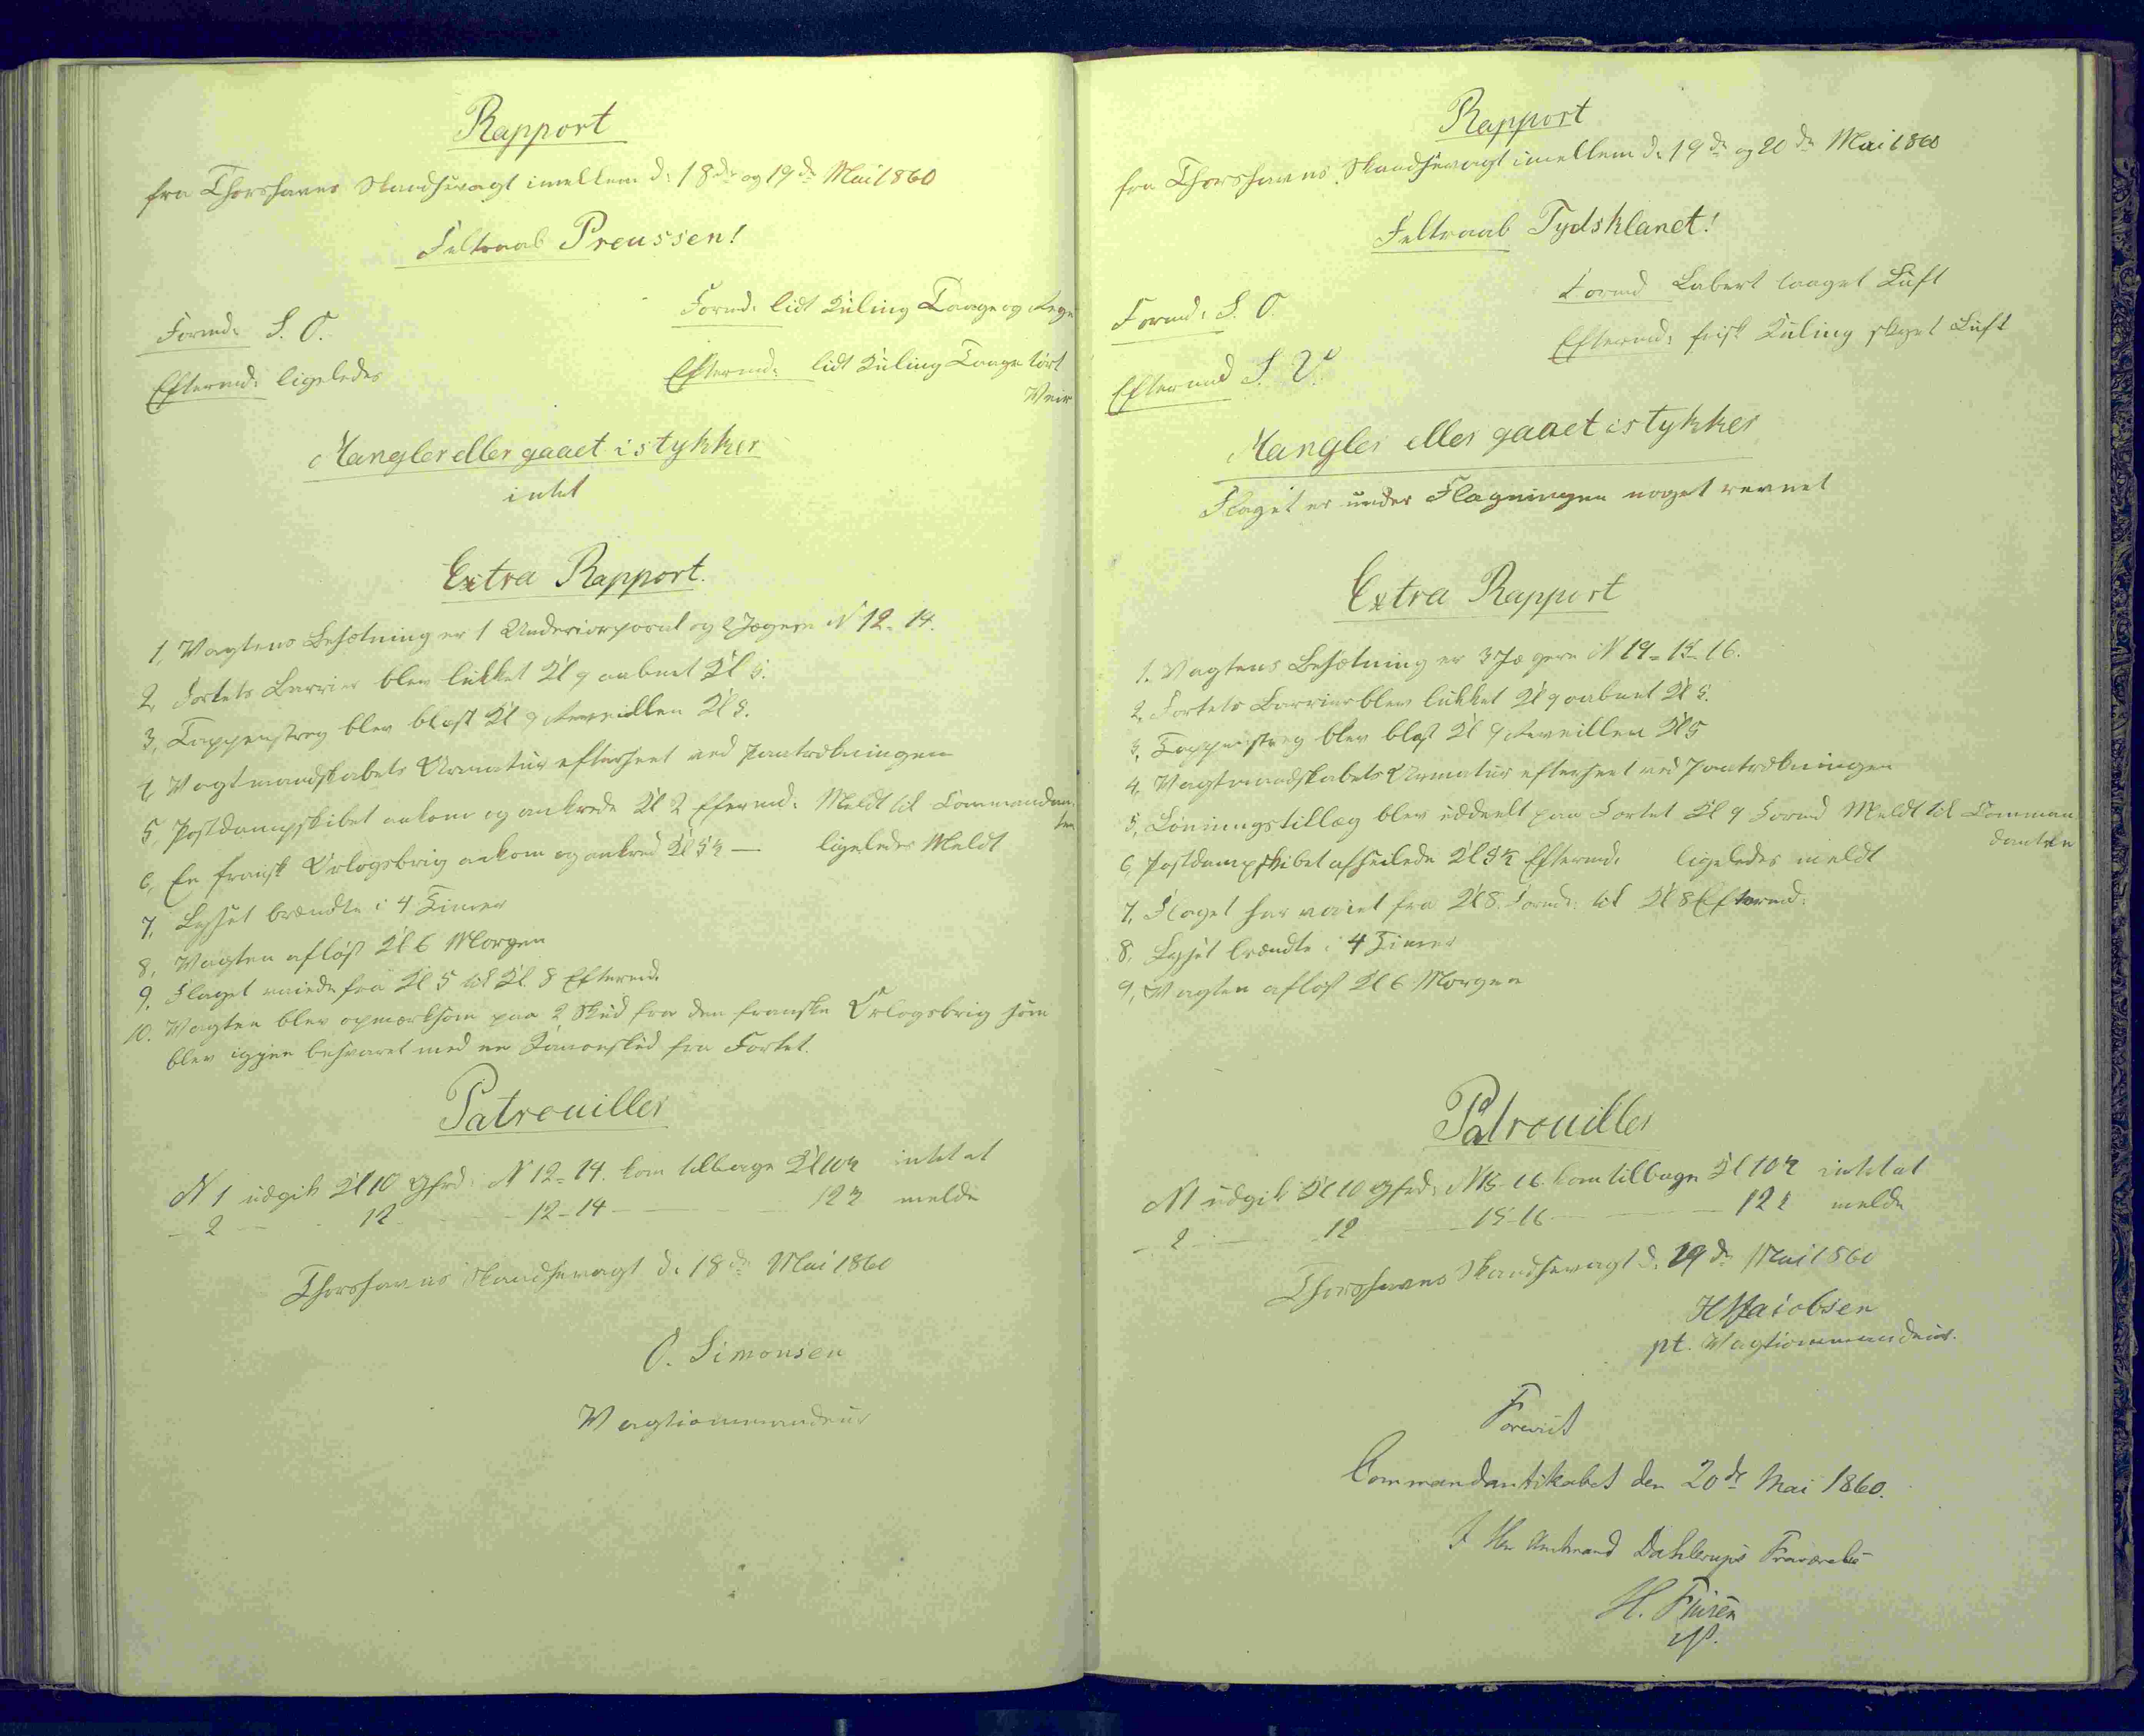 Rapport
fra Thorshavns Skandsevagt imellem d: 18de og 19de Mai 1860
Feltraab Preussen!
Formd: S. O. Formd: lidt Kuling Taage og Regn
Eftermd: ligeledes Eftermd: lidt Kuling Taage tørt
Veir
Mangler eller gaaet istykker
intet
Extra Rapport.
1, Vagtens Besætning er 1 Undercorporal og 2 Jægere N 12-14.
2, Fortets Barrier blev lukket Kl 9 aabnet Kl 5.
3, Tappenstreg blev blæst Kl 9 Reveillen Kl 5.
4, Vagtmandskabets Armatur efterseet ved Paatrækningen
5, Postdampskibet ankom og ankrede Kl 2 Efermd: Meldt til Commandan
ten
6, En fransk Orlogsbrig ankom og ankred Kl 5½ — ligeledes Meldt
7, Lyset brændte i 4 Timer
8, Vagten afløst Kl 6 Morgen
9, Flaget vaiede fra Kl 5 til Kl. 8 Eftermd:
10. Vagten blev opmærksom paa 2 Skud fra den franske Orlogsbrig som
blev igjen besvaret med en Kanonskud fra Fortet.
Patrouiller
N 1 udgik Kl 10 Hjrd: N 12-14. kom tilbage Kl 10½ intet at
— 2 — 12 — 12-14 — 12½ melde
Thorshavns Skandsevagt d: 18de Mai 1860
O. Simonsen
Vagtcommandeur
Rapport
fra Thorshavns Skandsevagt imellem d: 19de og 20de Mai 1860
Feltraab Tydskland!
Formd: S. O. Formd Labert taaget Luft
Eftermd S. V. Eftermd: frisk Kuling skyet Luft
Mangler eller gaaet istykker
Flaget er under Flagningen noget revnet
Extra Rapport
1. Vagtens Besætning er 3 Jægere N 14-15-16.
2, Fortets Barrier blev lukket Kl 9 aabnet Kl 5.
3, Tappenstreg blev blæst Kl 9 Reveillen Kl 5
4, Vagtmandskabets Armatur efterseet ved Paatrækningen
5, Lønningstillæg blev uddeelt paa Fortet Kl 9 Formd Meldt til Comman
danten
6, Postdampskibet afseilede Kl 5½ Eftermd: ligeledes meldt
7, Flaget har vaiet fra Kl 8 Formd: til Kl 8 Eftermd:
8, Lyset brændte i 4 Timer
9, Vagten afløst Kl 6 Morgen
Patrouiller
N 1 udgik Kl 10 Hjrd: N 15-16. kom tilbage Kl 10½ intet at
— 2 — 12 — 15-16 — 12½ melde
Thorshavns Skandsevagt d: 19de Mai 1860
Jacobsen
pt. Vagtcommandeur.
Foreviist
Commandantskabet den 20de Mai 1860.
I Hr Amtmand Dahlerups Fraværelse
H.